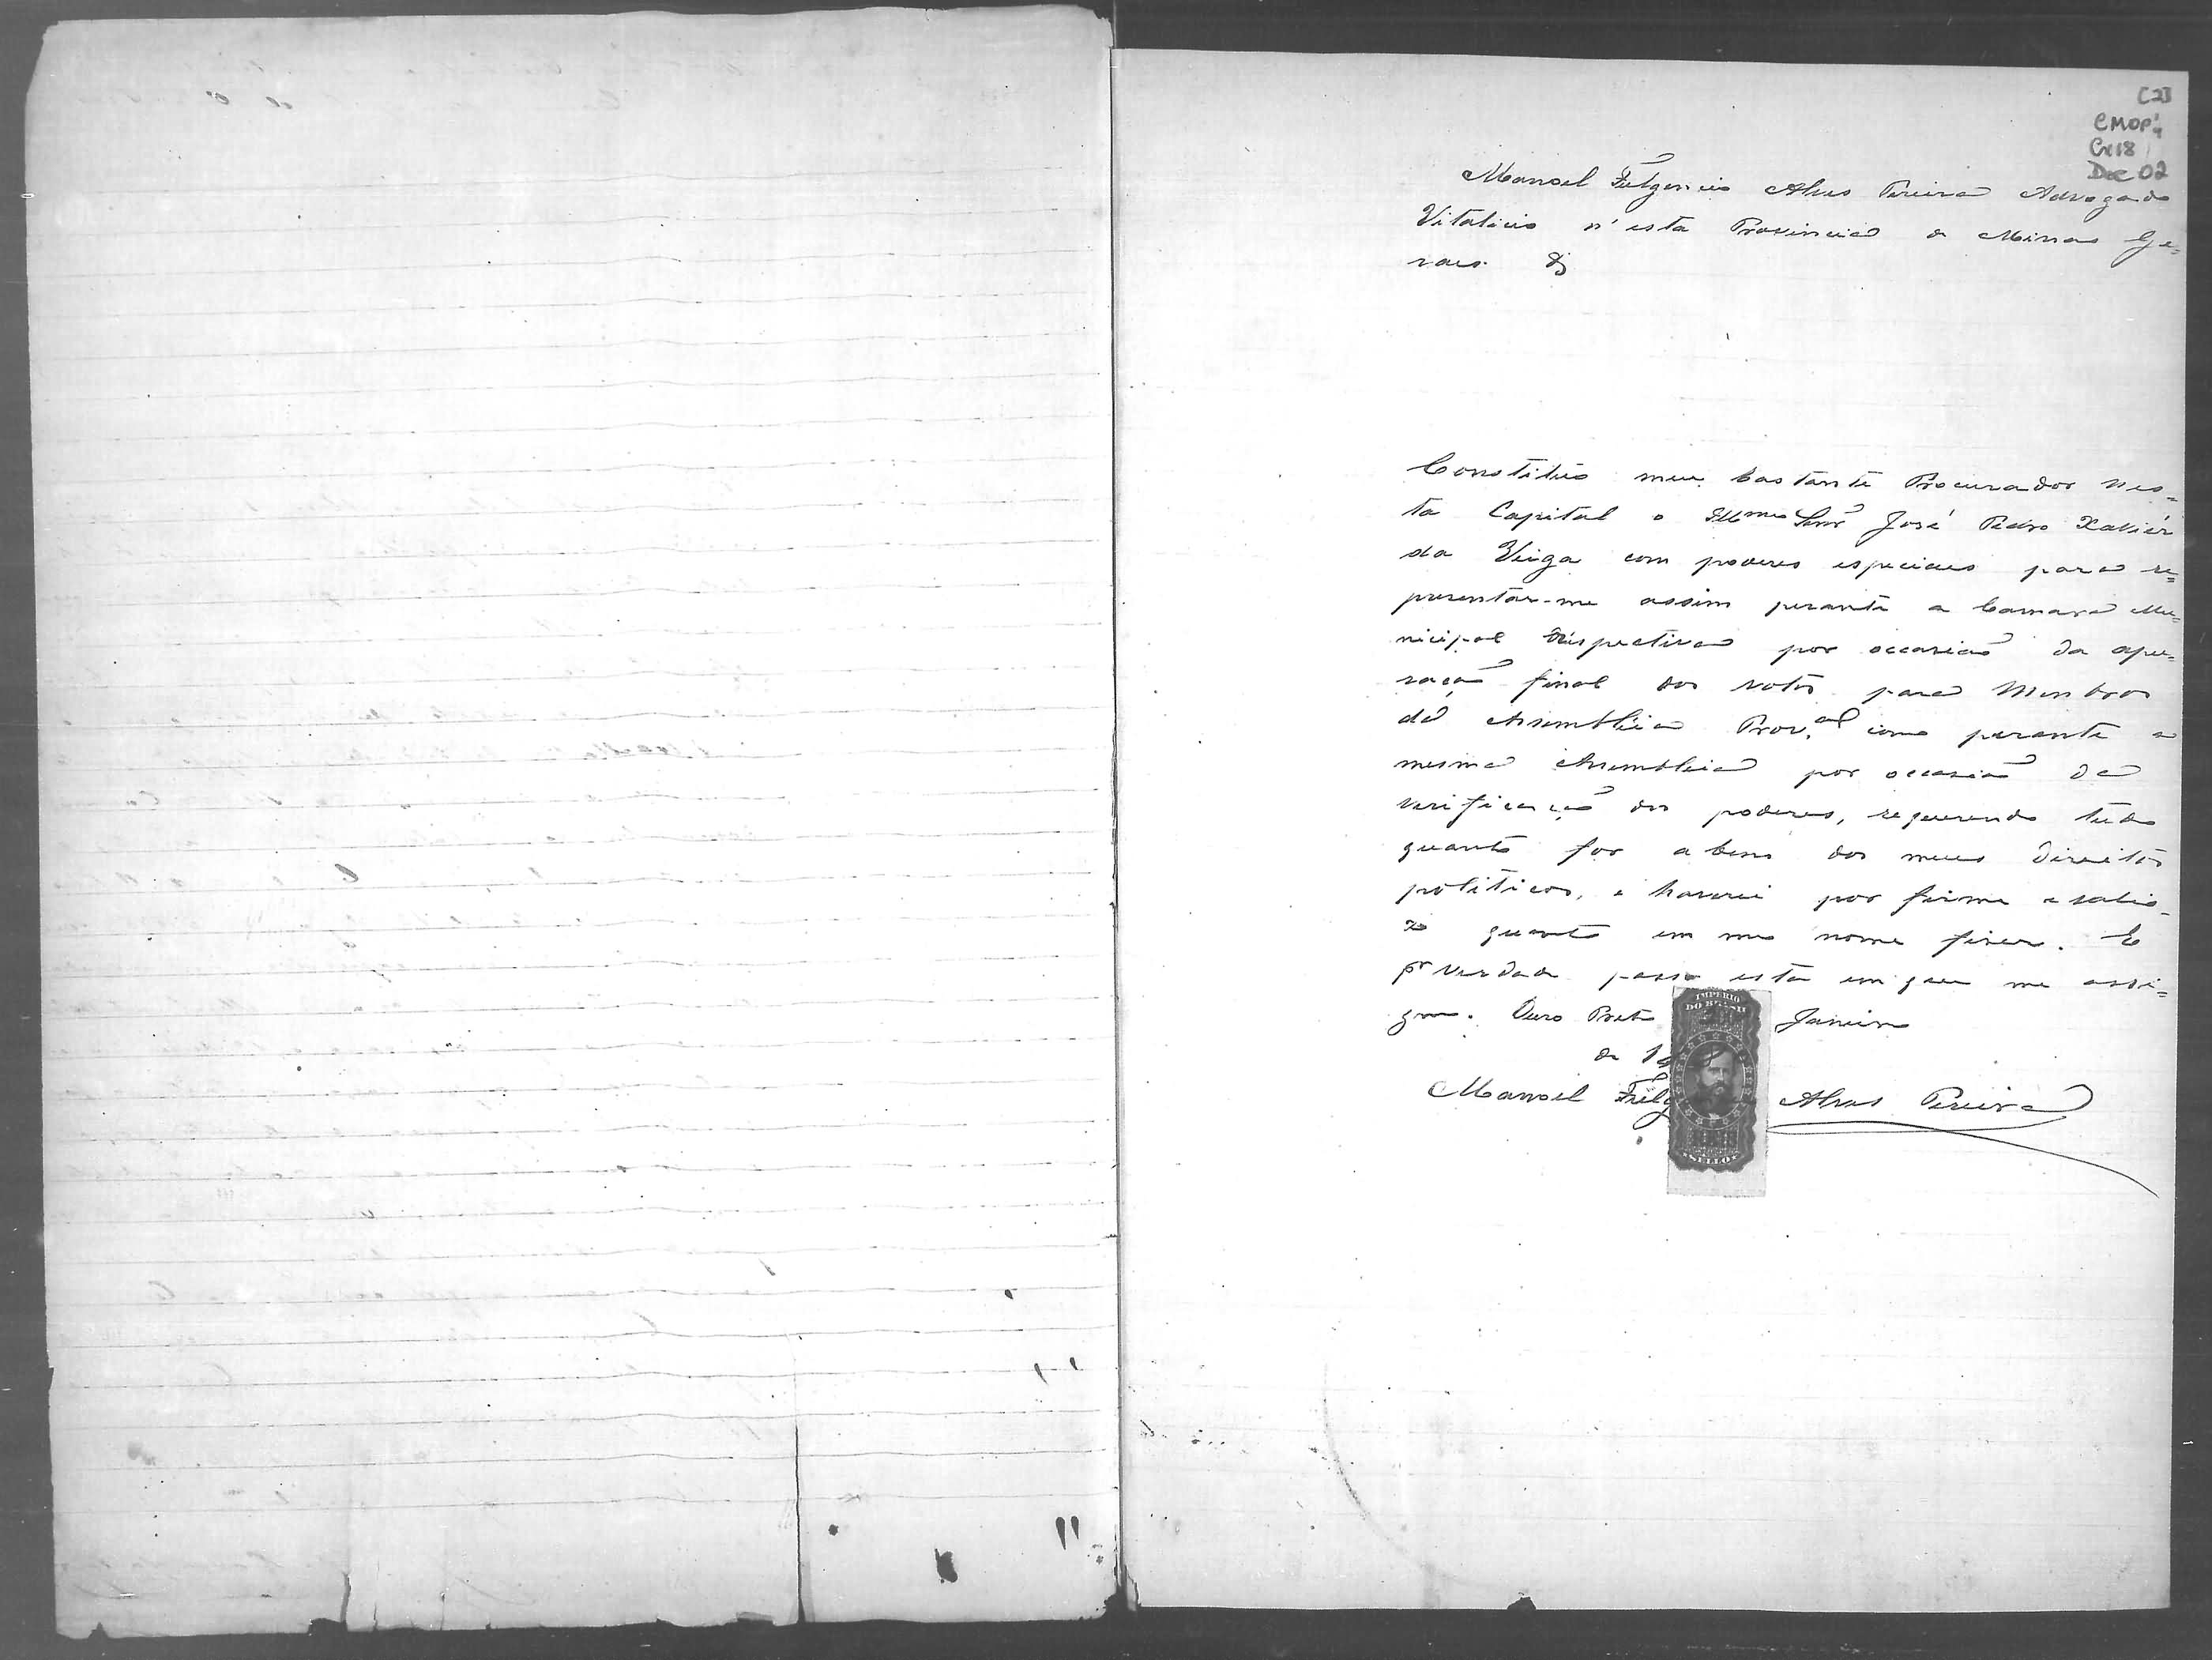 [2]
CMOP
Cx18
Doc 02
Manoel Fulgencio Alves Pereira Advogado
Vitalicio n'esta Provincia de Minas Ge=
raes. &
Constitúo meu bastante Procurador nes=
ta Capital o Illmo Senr José Pedro Xavier
da Veiga com poderes especiaes para re=
presentar-me assim perante a Camara Mu=
nicipal respectiva por occasião da apu=
ração final dos votos para Membros
da Assembléia Prov.al como perante a
mesma Assembleia por occasião da
verificação dos poderes, requerendo tudo
quanto for a bem dos meus direitos
politicos, e haverei por firme e valio-
zo quanto em meu nome fizer. E
pr verdade passo esta em que me assi=
gno. Ouro Preto Janeiro
de
IMPERIO
DO BRASIL
Manoel Fulg Alves Pereira
SELLO